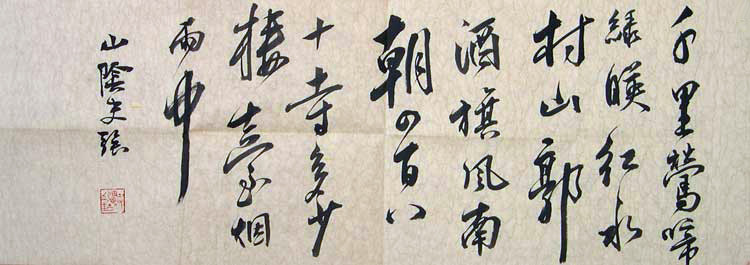 千里鶯啼
綠暎紅水
村山郭
酒旗風南
朝四百八
十寺多少
樓臺烟
雨中
山陰史